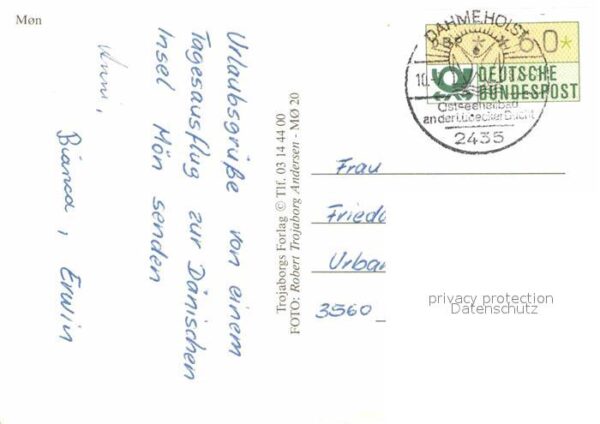 Møn
Urlaubsgrüße von einem
Tagesausflug zur Dänischen
Insel Mön senden
Bianca, Erwin
Trojaborgs Forlag © Tlf. 03 14 44 00
FOTO: Robert Trojaborg Andersen - MØ 20
DAHME, HOLST
60*
DEUTSCHE
BUNDESPOST
10.
Ostseeheilbad
an der Lübecker Bucht
2435
Frau
Frieda
Urban
3560
privacy protection
Datenschutz